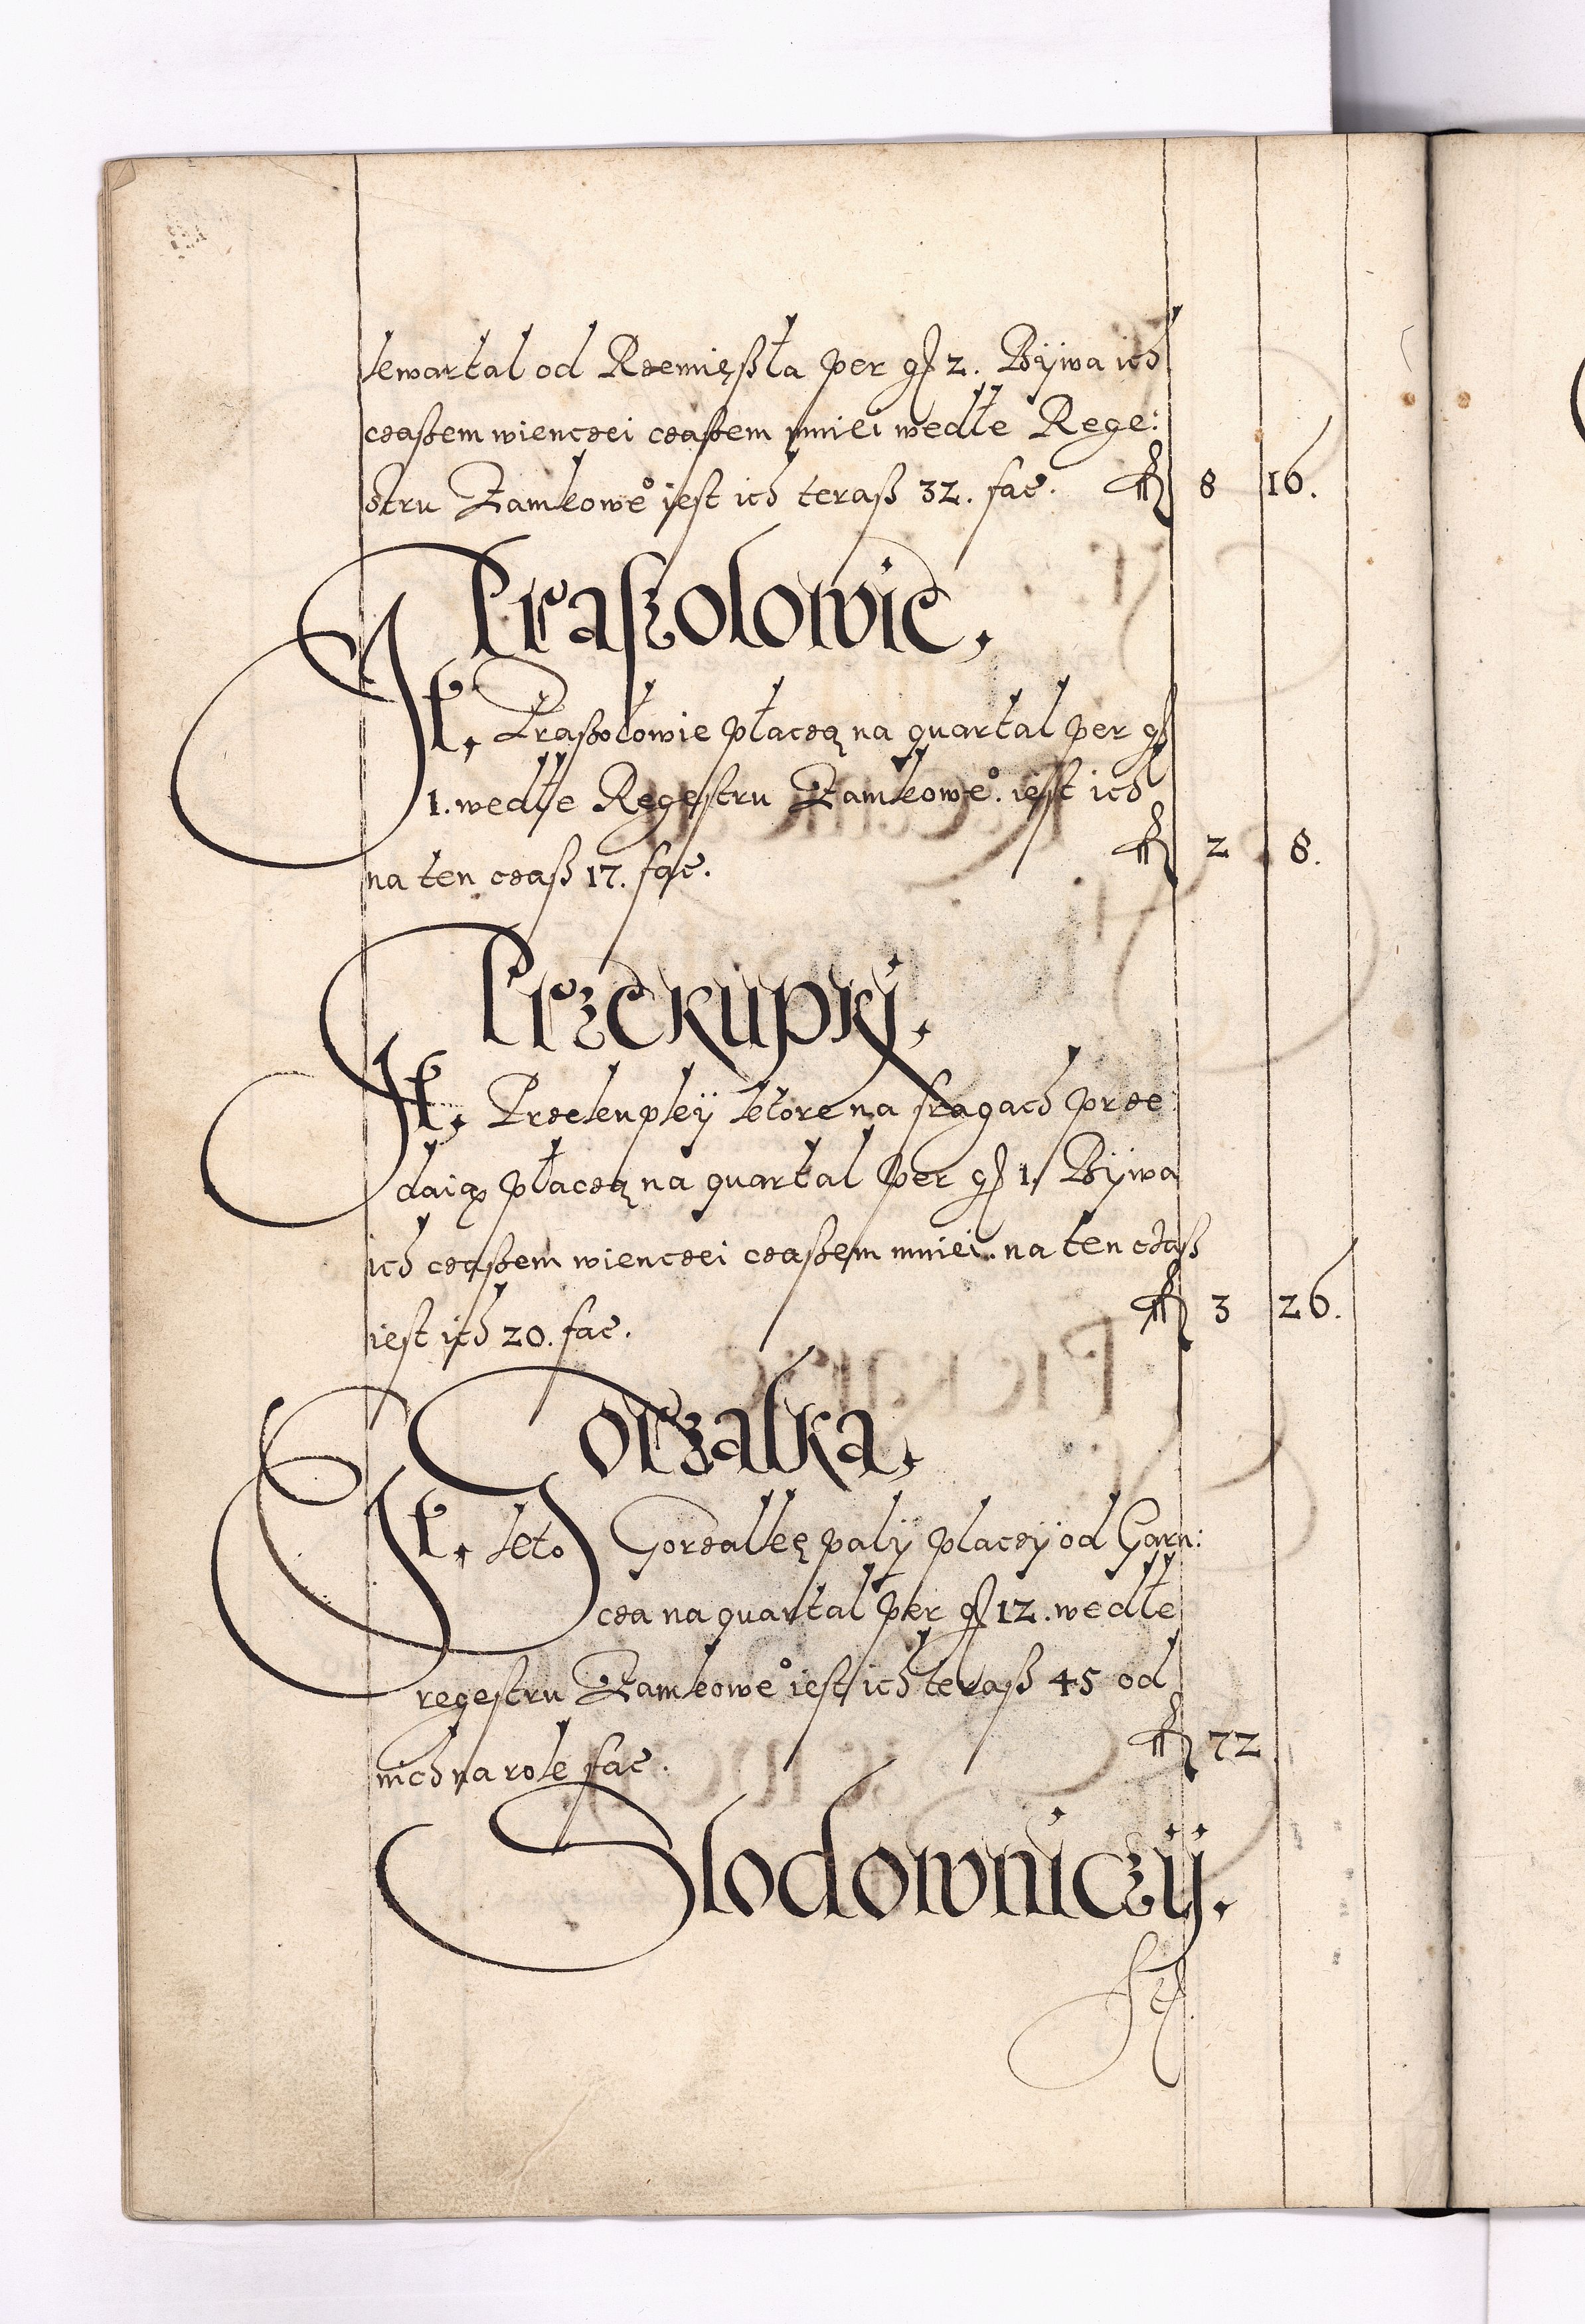 kwartal od Rzemięßła per gſ 2. Bÿwa ich
czaßem wienczei czaßem mniei wedłe Rege:
stru Zamkowe° iest ich teraß 32. fac. fl 8 16.
Praszolowie.
It. Praßołowie płaczą na quartal per gſ
1. wedłe Regestru Zamkowe°. iest ich
na ten czaß 17. fac. fl 2 8.
Przekupkj.
It. Przekupkÿ ktore na sragach prze
daią płaczą na quartal per gſ 1. Bÿwa
ich czaßem wienczei czaßem mniei. na ten czaß
iest ich 20. fac. fl 3 26.
Gorzalka.
It. kto Gorzalkę palÿ placzÿ od Garn:
cza na quartal per gſ 12. wedłe
regestru Zamkowe° iest ich teraß 45 od
nich na rok fac. fl 72
Slodowniczÿ.